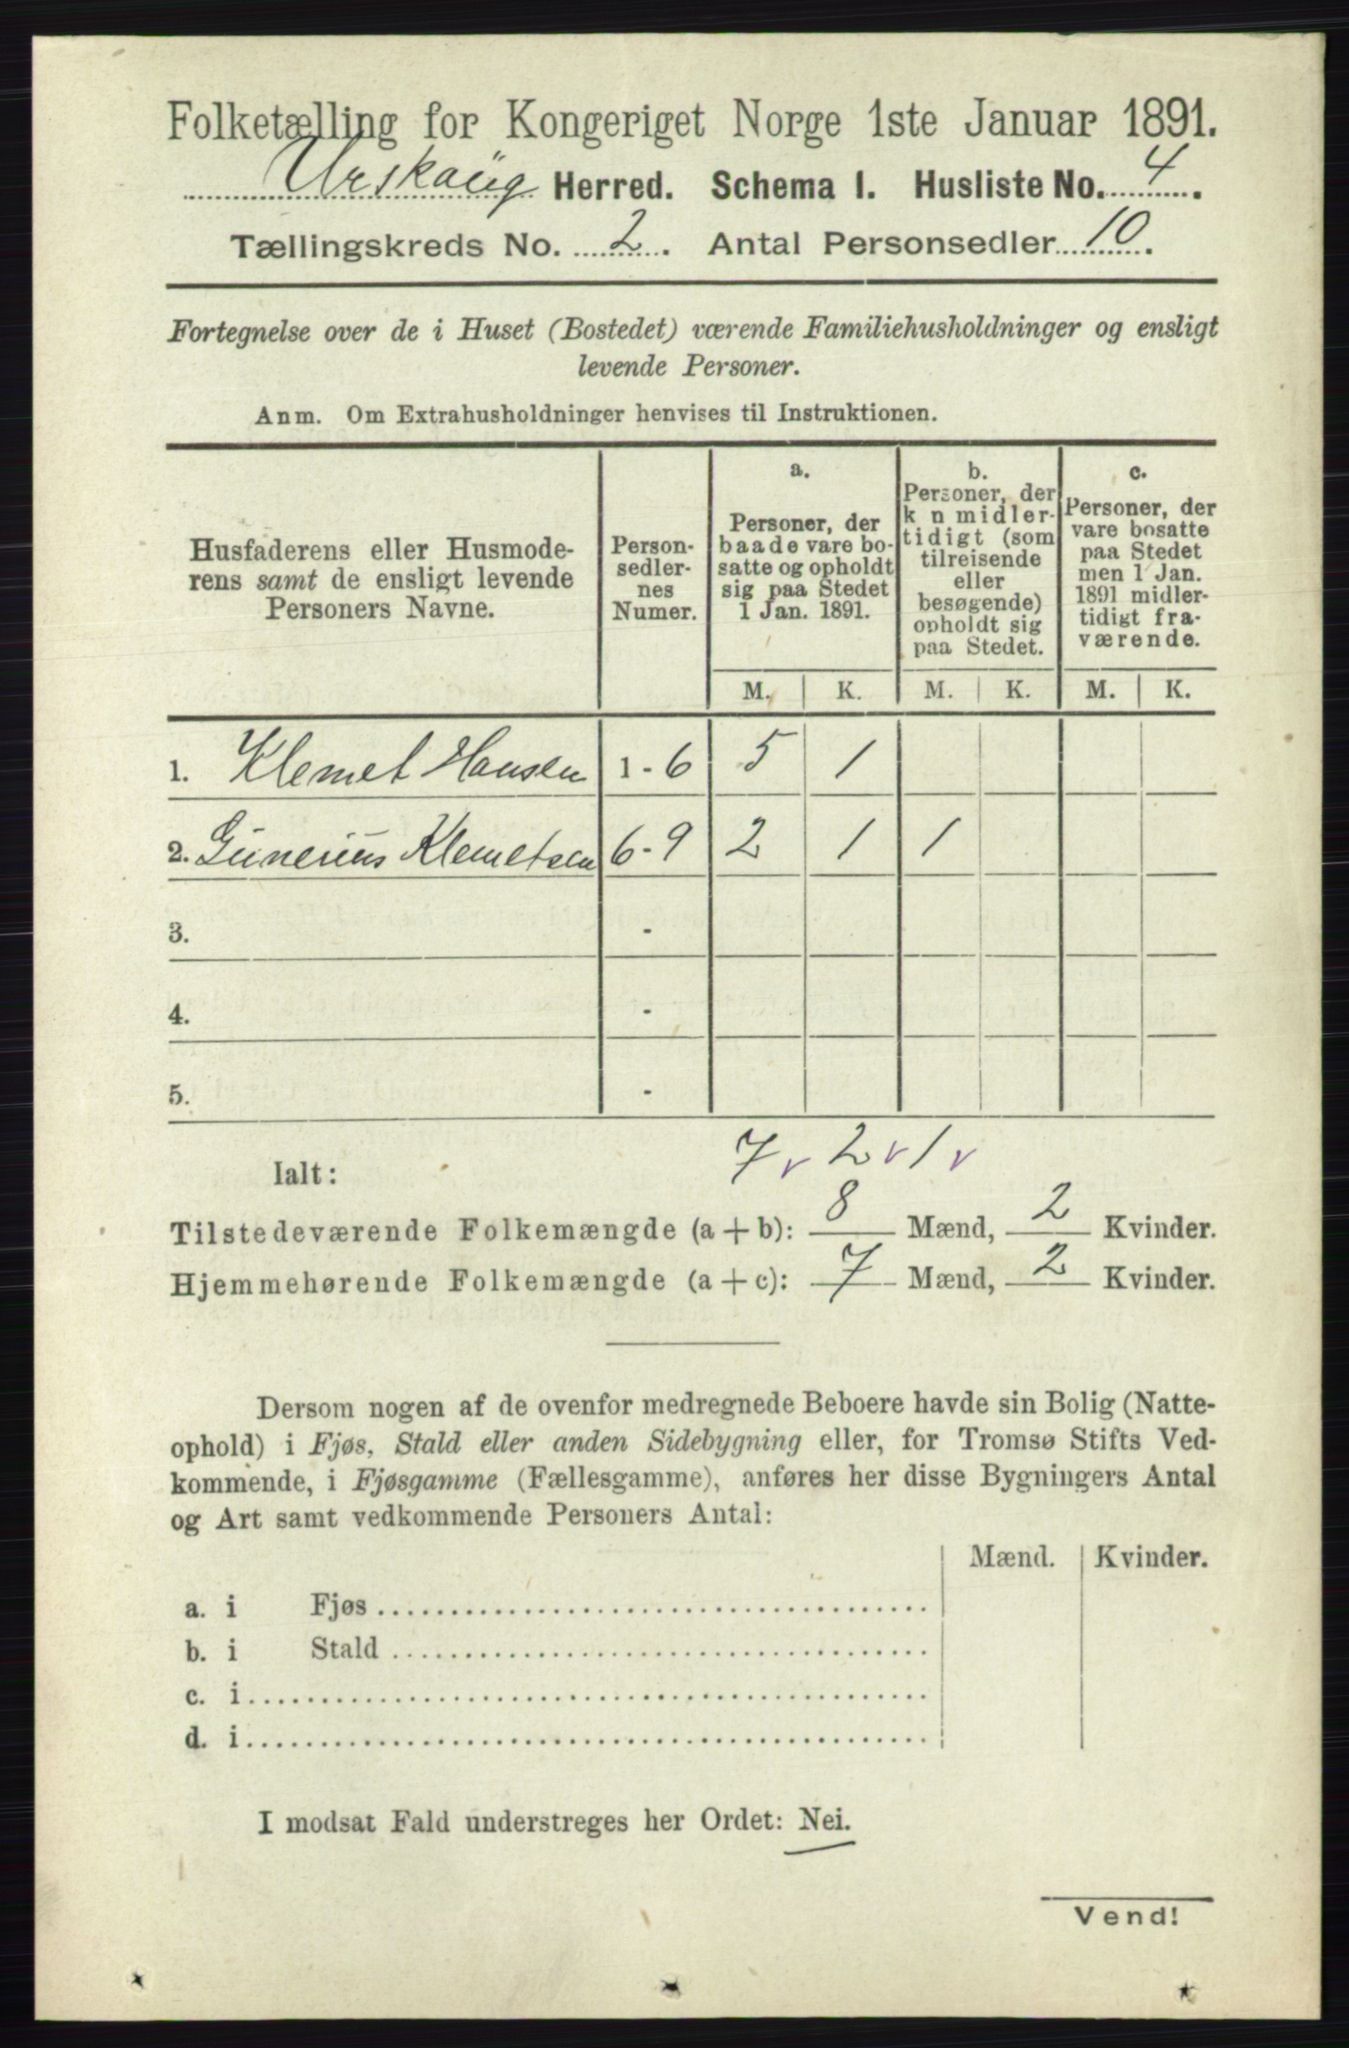 Folketælling for Kongeriget Norge 1ste Januar 1891.
Urskoug Herred. Schema I. Husliste No. 4.
Tællingskreds No. 2. Antal Personsedler 10.
Fortegnelse over de i Huset (Bostedet) værende Familiehusholdninger og ensligt
levende Personer.
Anm. Om Extrahusholdninger henvises til Instruktionen.
Husfaderens eller Husmode-
rens samt de ensligt levende
Personers Navne.
Person-
sedler-
nes
Numer.
a.
Personer, der
baade vare bo-
satte og opholdt
sig paa Stedet
1 Jan. 1891.
b.
Personer, der
k n midler-
tidigt (som
tilreisende
eller
besøgende)
opholdt sig
paa Stedet.
c.
Personer, der
vare bosatte
paa Stedet
men 1 Jan.
1891 midler-
tidigt fra-
værende.
M. K. M. K. M. K.
1. Klemet Hansen 1-6 5 1
2. Gunerius Klemetsen 6-9 2 1 1
3. -
4. -
5. -
7 v 2 v 1 v
Ialt:
Tilstedeværende Folkemængde (a + b): 8 Mænd, 2 Kvinder.
Hjemmehørende Folkemængde (a + c): 7 Mænd, 2 Kvinder.
Dersom nogen af de ovenfor medregnede Beboere havde sin Bolig (Natte-
ophold) i Fjøs, Stald eller anden Sidebygning eller, for Tromsø Stifts Ved-
kommende, i Fjøsgamme (Fællesgamme), anføres her disse Bygningers Antal
og Art samt vedkommende Personers Antal:
Mænd. Kvinder.
a. i Fjøs
b. i Stald
c. i
d. i
I modsat Fald understreges her Ordet: Nei.
Vend!